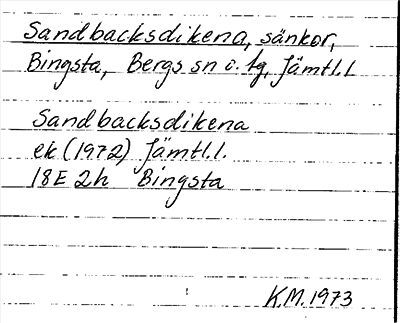 Sandbacksdikena, sänkor,
Bingsta, Bergs sn o. tg, Jämtl.l
Sandbacksdikena
ek (1972) Jämtl.l.
18E 2h Bingsta
K.M. 1973